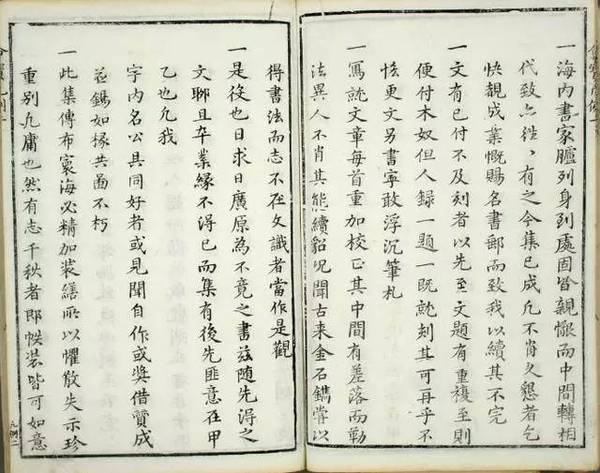 一海內書家臚列身到處固皆親懷而中間轉相
代致亦往往有之今集已成凡不肖久懇者乞
快親成業慨賜名書郵而致我以續其不完
一文有已付不及刻者以先至文題有重複至則
便付木奴但人錄一題一既就刻其可再乎不
恡更文另書寧敢浮沉筆札
一寫就文章每首重加校正其中間有差落而勒
法異人不肖其能續貂况聞古来金石鐫嘗以
得書法而志不在文識者當作是觀
一是役也日求日廣原為不竟之書茲隨先得之
文聊且卒業緣不得已而集有後先匪意在甲
乙也允我
字內名公具同好者或見聞自作或奬借贊成
茲錫如椽共啚不朽
一此集傳布寰海必精加裝繕所以懼散失示珍
重別凡庸也然有志千秩者即帙裝皆可如意
凡例二